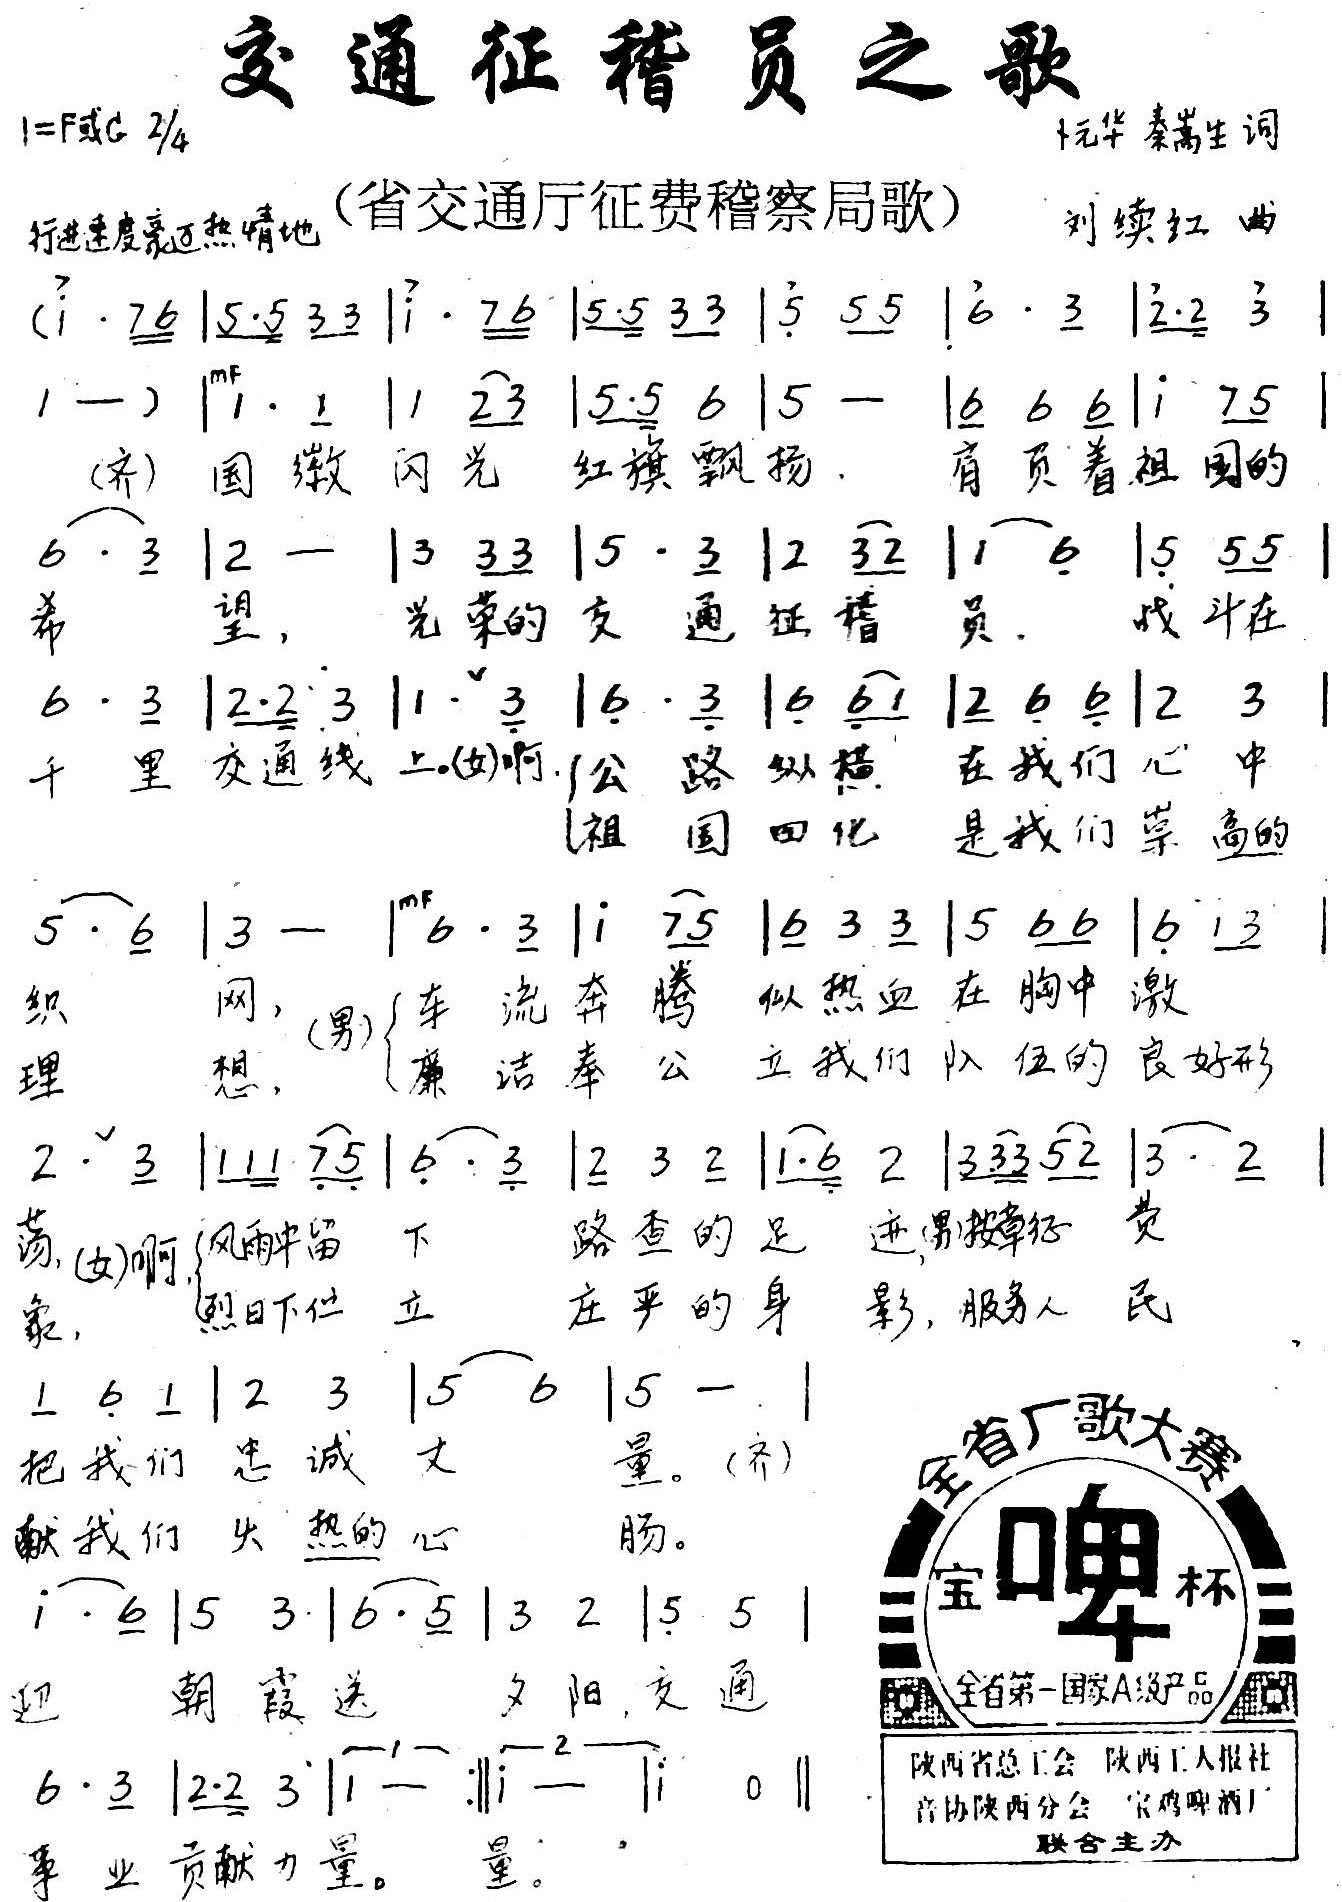 交通征稽员之歌
1=F或G 2/4
卜元华 秦嵩生 词
(省交通厅征费稽察局歌)
行进速度豪迈热情地
刘续红 曲
(i · 76 | 5·5 33 | i · 76 | 5·5 33 | 5 55 | 6 · 3 | 2·2 3 |
1 — ) | mF 1 · 1 | 1 23 | 5·5 6 | 5 — | 6 6 6 | i 75 |
(齐) 国徽闪光 红旗飘扬. 肩负着祖国的
6 · 3 | 2 — | 3 33 | 5 · 3 | 2 32 | 1 6 | 5 55 |
希望, 光荣的交通征稽员. 战斗在
6 · 3 | 2·2 3 | 1 · ˇ 3 | 6 · 3 | 6 61 | 2 6 6 | 2 3 |
千里交通线上。(女)啊. {公路纵横 在我们心中
祖国四化 是我们崇高的
5 · 6 | 3 — | mF 6 · 3 | i 75 | 6 3 3 | 5 66 | 6 13 |
织网, (男) {车流奔腾 似热血在胸中激
理想, 廉洁奉公 立我们队伍的良好形
2 · ˇ 3 | 111 75 | 6 · 3 | 2 3 2 | 1·6 2 | 333 52 | 3 · 2 |
荡, (女)啊, {风雨中留下 路查的足迹, (男)按章征费
象, 烈日下伫立 庄严的身影, 服务人民
1 6 1 | 2 3 | 5 6 | 5 — |
把我们忠诚丈量。(齐)
献我们火热的心肠。
i · 6 | 5 3 | 6 · 5 | 3 2 | 5 5 |
迎朝霞送夕阳, 交通
6 · 3 | 2·2 3 | 1 i — :‖ 2 i — | i 0 ‖
事业贡献力量。 量。
全省厂歌大赛
宝啤杯
全省第一国家A级产品
陕西省总工会 陕西工人报社
音协陕西分会 宝鸡啤酒厂
联合主办